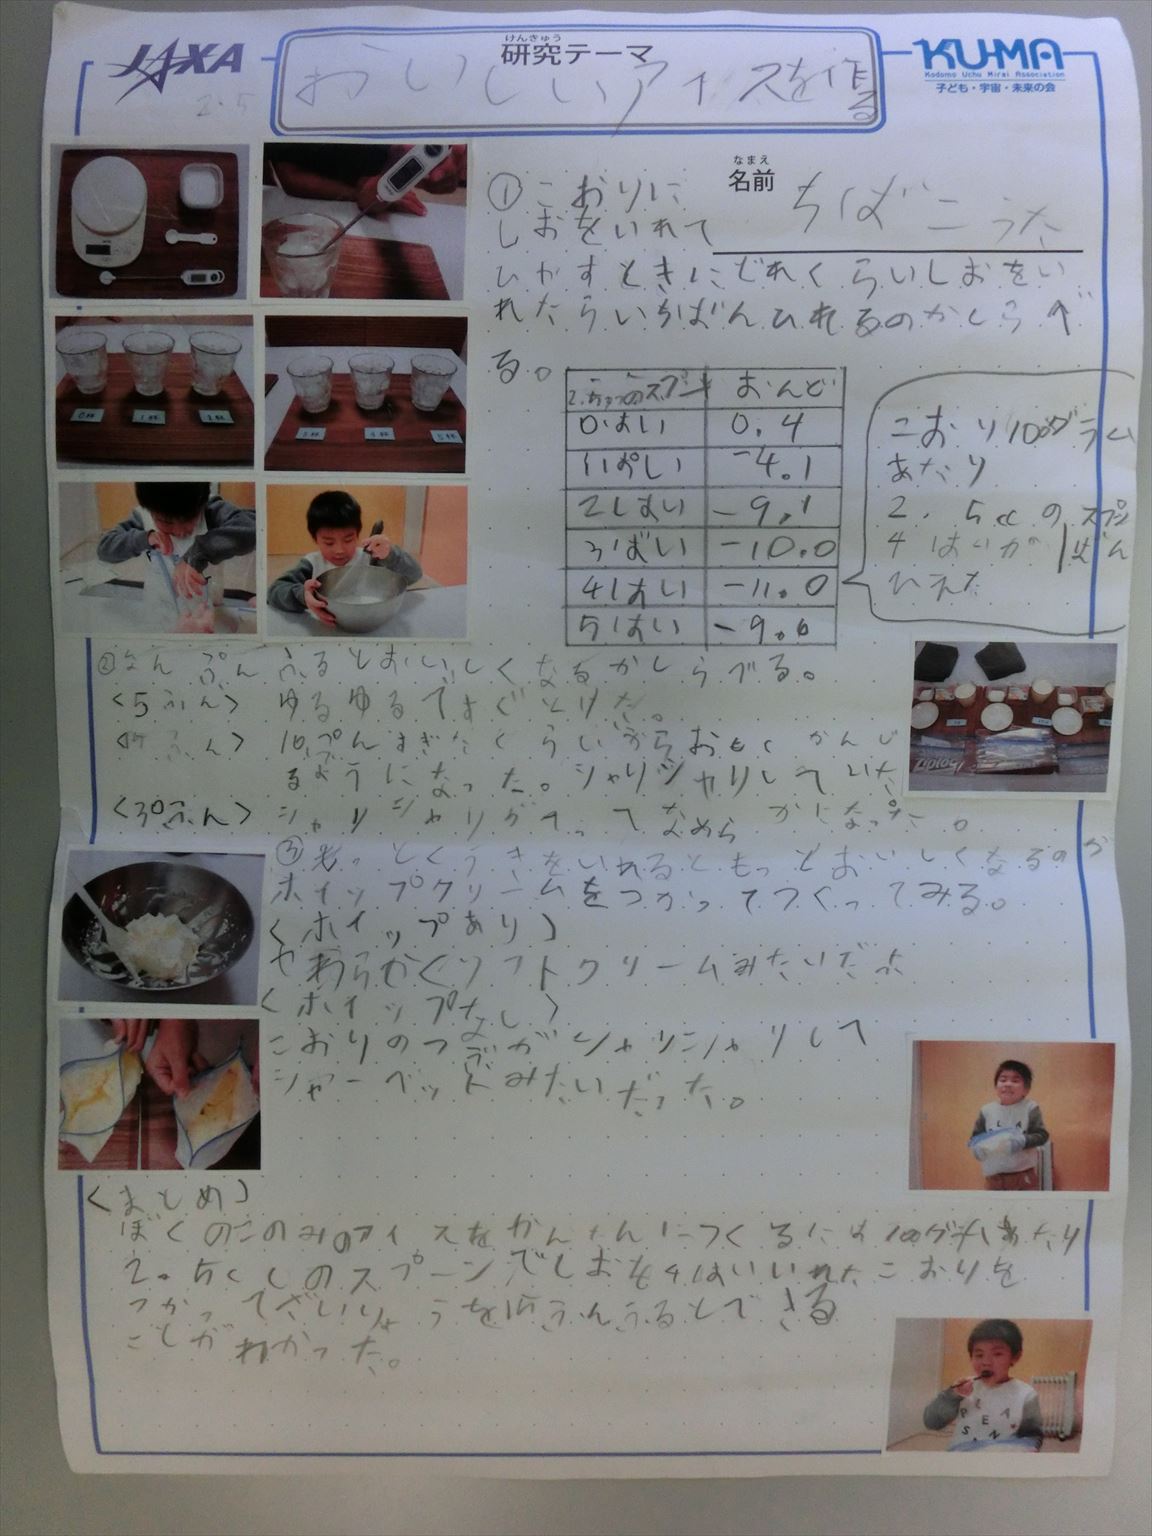 JAXA
けんきゅう
研究テーマ
おいしいアイスを作る
2.5
KU-MA
Kodomo Uchu Mirai Association
子ども・宇宙・未来の会
なまえ
名前
ちばこうた
①こおりに
しおをいれて
ひやすときにどれくらいしおをい
れたらいちばんひえるのかしらべ
る。
おんど
0はい 0.4
1ぱい -4.1
2はい -9.1
3ばい -10.0
4はい -11.0
5はい -9.6
こおり100グラム
あたり
2.5ccのスプン
4はいが1ばん
ひえた
②なんぷんふるとおいしくなるかしらべる。
<5ふん> ゆるゆるですぐとりた。
10ぷんすぎたくらいからおもくかんじ
るようになった。シャリシャリしていた
シャリシャリがへってなめらかになった。
③もっとくうきをいれるともっとおいしくなるのか
ホイップクリームをつかってつくってみる。
<ホイップあり>
やわらかくソフトクリームみたいだった
<ホイップなし>
こおりのつぶがシャリシャリして
シャーベットみたいだった。
<まとめ>
ぼくのこのみのアイスをかんたんにつくるには100グラムあたり
2.5ccのスプーンでしおを4はいいれたこおりを
つかってざいりょうを15ふんふるとできる
ことがわかった。
0杯
1杯
2杯
3杯
4杯
5杯
Ziploc